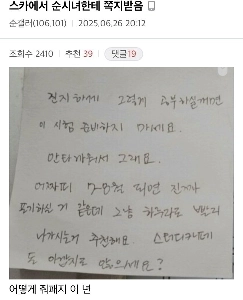 스카에서 순시녀한테 쪽지받음
순갤러(106,101) | 2025,06,26 20:12
조회수 2410 추천 39 댓글19
진지하게 그렇게 공부하실꺼면
이 시험 준비하지 마세요.
안타까워서 그래요.
어차피 7-8월 되면 진짜
포기하실 거 같은데 그냥 하루라도 빨리
나가시는걸 추천해요. 스터디카페
돈 아깝지도 않으세요?
어떻게 줘패지 이 년